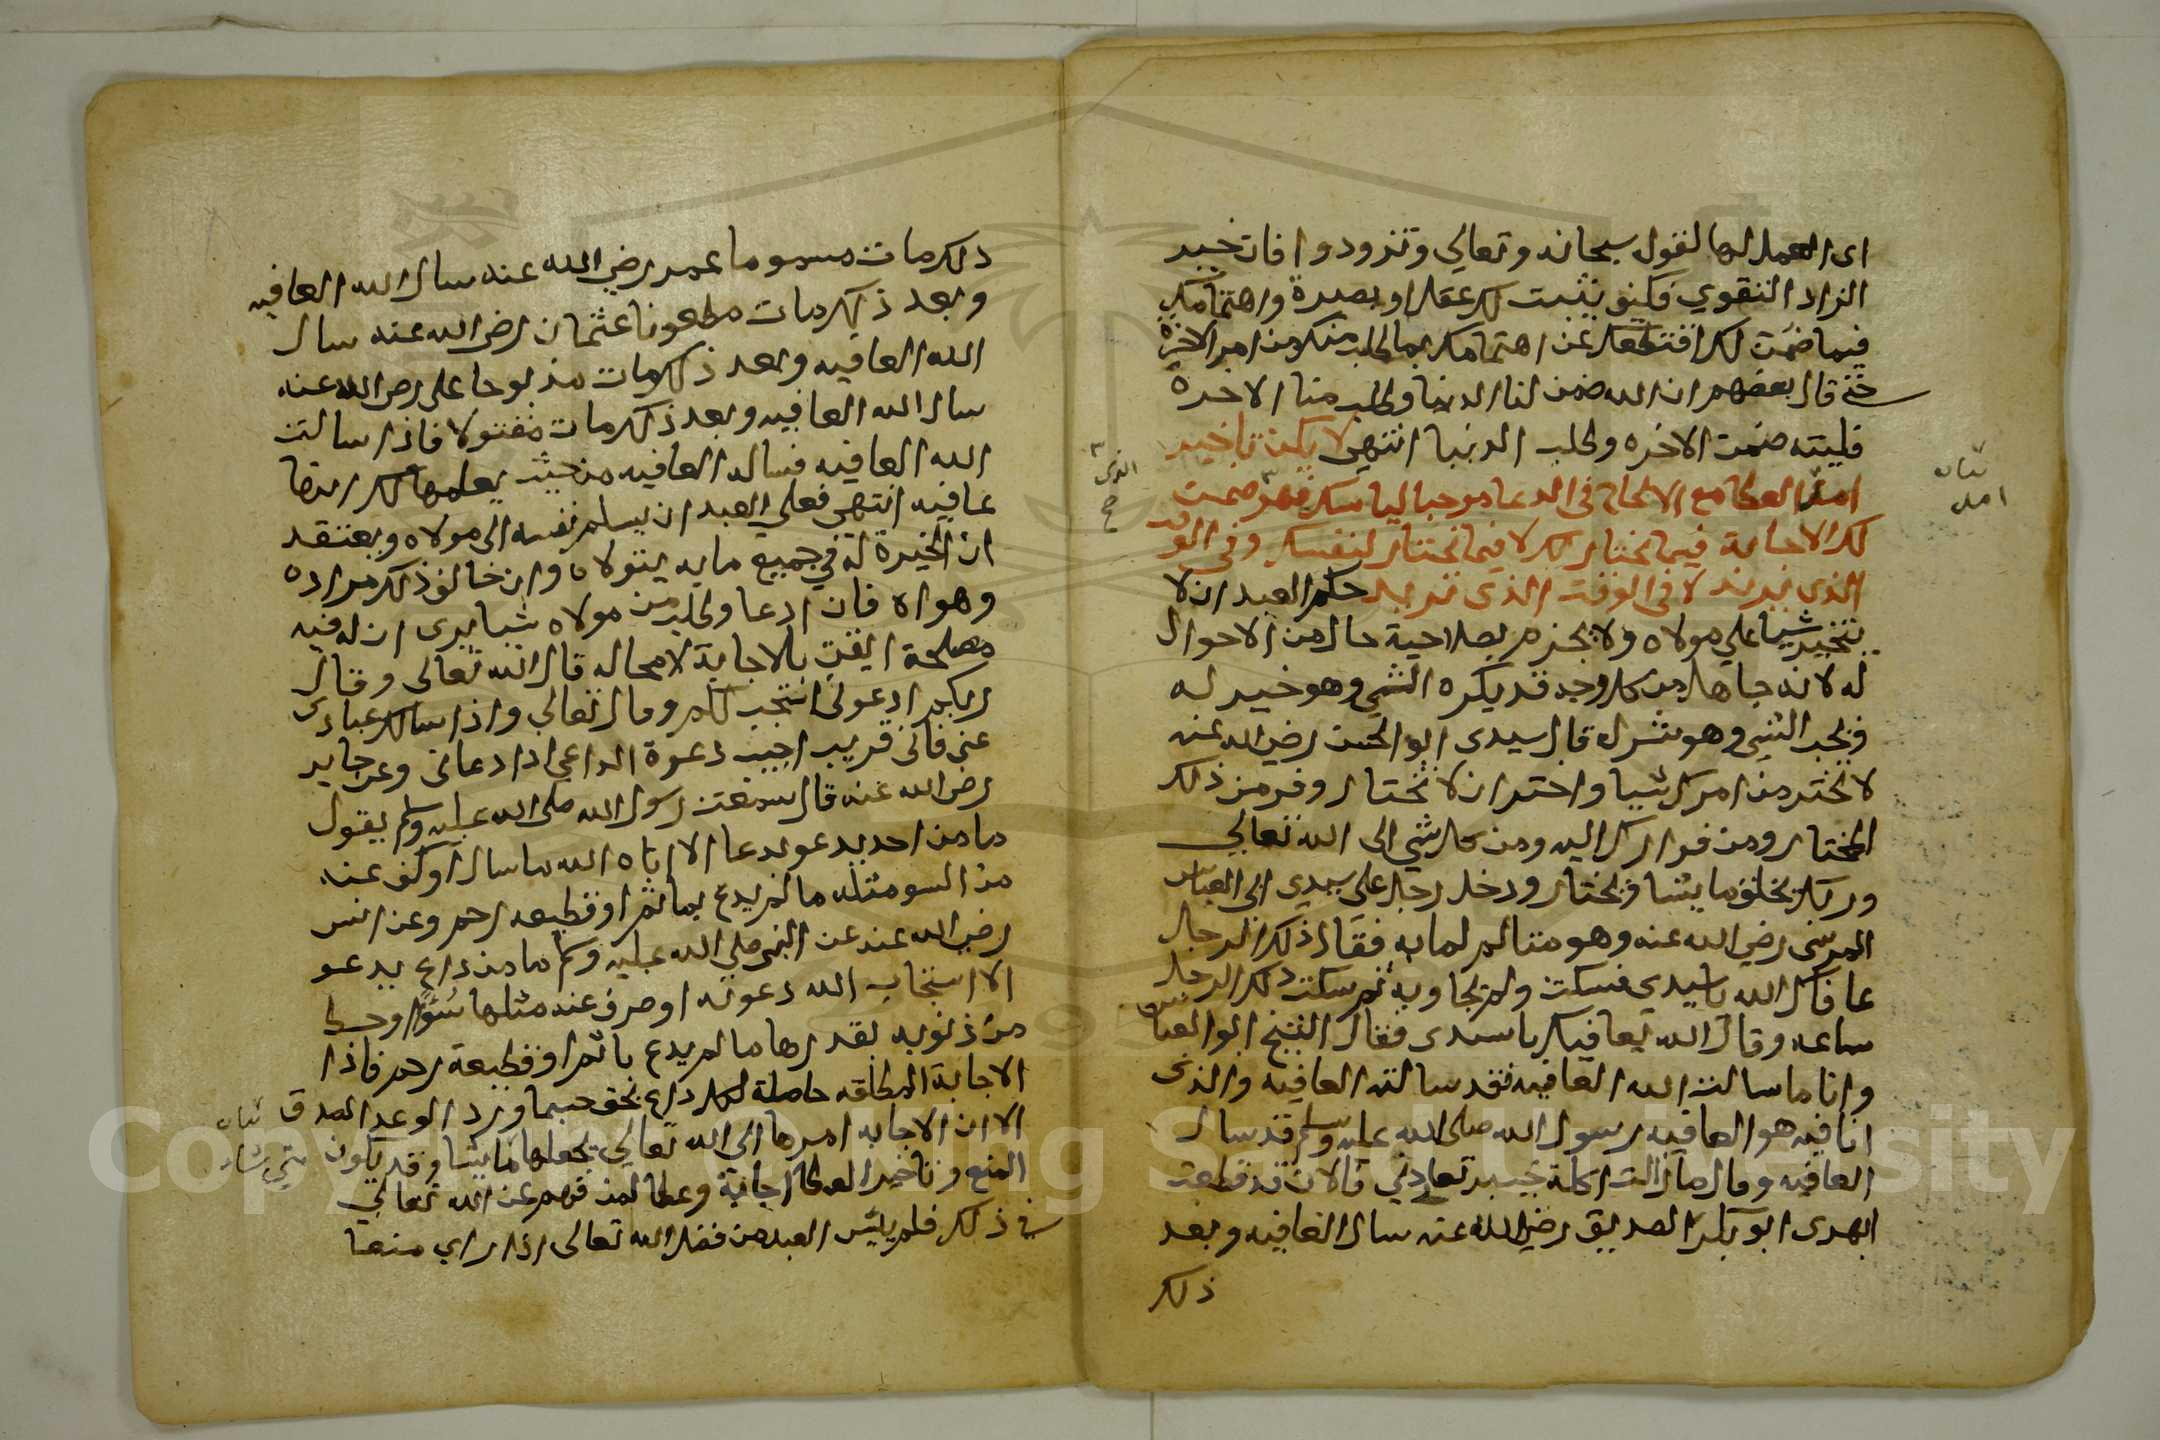 اى العمل لها لقول سبحانه وتعالي وتزودوا فان خير
الزاد التقوي فكيف يثبت لك عقل او بصيرة واهتمامك
فيما ضمن لك اقتطعك عن اهتمامك بما طلب منك من امر الاخرة
حتى قال بعضهم ان الله ضمن لنا الدنيا وطلب منا الاخرة
فليته ضمن الاخره وطلب الدنيا انتهى لا يكن تاخير
امد العطا مع الالحاح فى الدعا موجبا لياسك فهو ضمن
لك الاجابة فيما يختار لك لا فيما تختار لنفسك وفى الوقت
الذى يريد لا فى الوقت الذى تريد حكم العبد ان لا
يتخير شيا علي مولاه ولا يجزم بصلاحية حال من الاحوال
له لانه جاهل من كل وجه قد يكره الشي وهو خير له
ويحب الشي وهو شر له قال سيدى ابو الحسن رضي الله عنه
لا تختر من امرك شيا واختر ان لا تختار وفر من ذلك
المختار ومن فرارك اليه ومن كل شي الى الله تعالي
وربك يخلق ما يشا ويختار ودخل رجل على سيدي ابى العباس
المرسى رضي الله عنه وهو متالم لما به فقال ذلك الرجل
عافاك الله ياسيدى فسكت ولم يجاوبه ثم سكت ذلك الرجل
ساعه وقال الله يعافيك ياسيدى فقال الشيخ ابو العباس
وانا ما سالت الله العافيه فقد سالته العافيه والذى
انا فيه هو العافيه رسول الله صلى الله عليه وسلم قد سال
العافيه وقال ما زالت اكلة خيبر تعاودني فالان قد قطعت
ابهرى ابو بكر الصديق رضي الله عنه سال العافيه وبعد
ذلك
ثبات
امد
الذى
ذلك مات مسموما عمر رضي الله عنه سال الله العافيه
وبعد ذلك مات مطعونا عثمان رضى الله عنه سال
الله العافيه وبعد ذلك مات مذبوحا على رضى الله عنه
سال الله العافيه وبعد ذلك مات مقتولا فاذا سالت
الله العافيه فساله العافيه من حيث يعلمها لك انها
عافيه انتهى فعلي العبد ان يسلم نفسه الى مولاه ويعتقد
ان الخيرة له في جميع ما به يتولاه وان خالف ذلك مراده
وهواه فان دعا وطلب من مولاه شيا يرى ان له فيه
مصلحة ايقن بالاجابة لا محاله قال الله تعالى وقال
ربكم ادعونى استجب لكم وقال تعالي واذا سالك عبادى
عنى فانى قريب اجيب دعوة الداعي اذا دعانى وعن جابر
رضى الله عنه قال سمعت رسول الله صلى الله عليه وسلم يقول
ما من احد يدعو بدعا الا اتاه الله ما سال او كف عنه
من السو مثله ما لم يدع بماثم او قطيعه رحم وعن انس
رضي الله عنه عن النبى صلى الله عليه وسلم ما من داع يدعو
الا استجاب الله دعوته او صرف عنه مثلها سوا او حط
من ذنوبه بقدرها ما لم يدع باثم او قطيعة رحم فاذا
الاجابة المطلقه حاصلة لكل داع بحق حسبما ورد الوعد الصدق
الا ان الاجابه امرها الى الله تعالي يجعلها ما يشا وقد يكون
المنع وتاخير العطا اجابة وعطا لمن فهم عن الله تعالي
فى ذلك فلم ييئس العبد من فضل الله تعالى اذا راي منعا
ثبات
متى شا